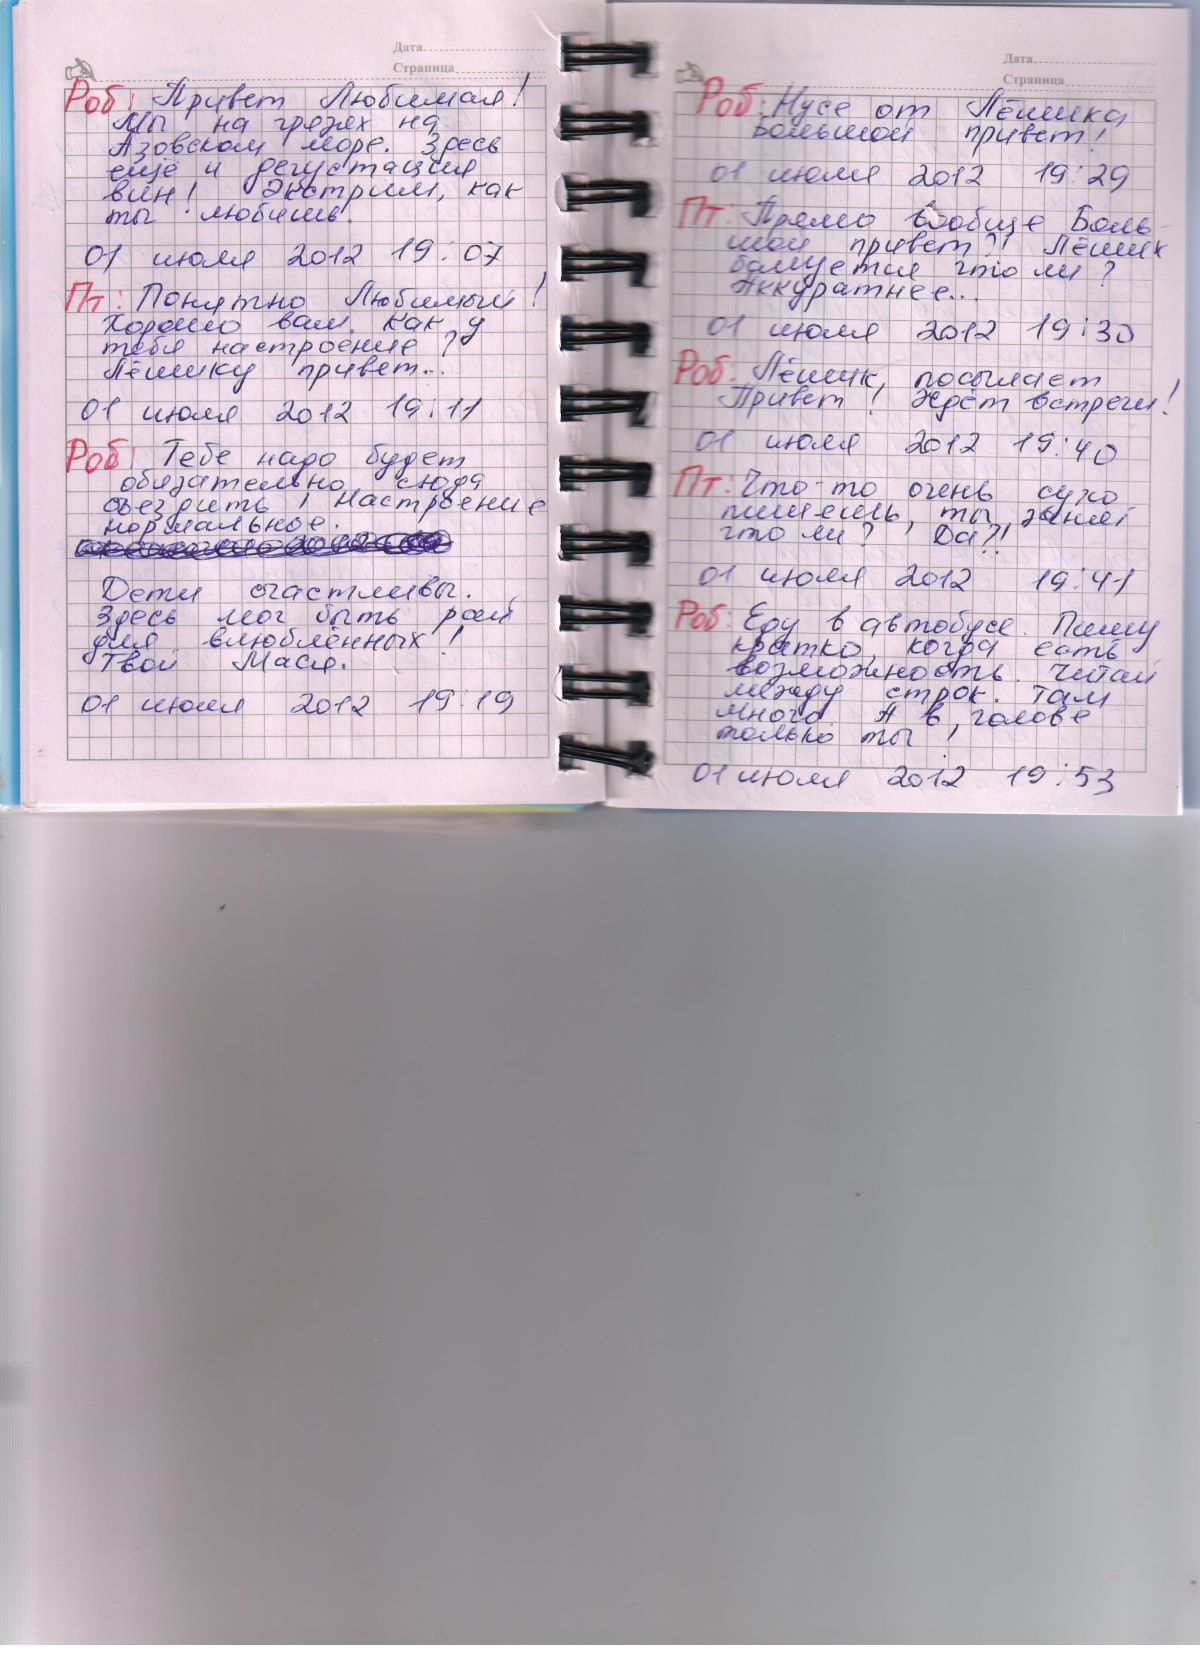 Дата
Страница
Роб: Привет Любимая!
Мы на грязях на
Азовском море. Здесь
ещё и дегустация
вин! Экстрим, как
ты любишь.
01 июля 2012 19:07
Пт: Понятно Любимый!
Хорошо вам. Как у
тебя настроение?
Лёшику привет...
01 июля 2012 19:11
Роб: Тебе надо будет
обязательно сюда
съездить! Настроение
нормальное.
Дети счастливы.
Здесь мог быть рай
для влюблённых!
Твой Мася.
01 июля 2012 19:19
Дата
Страница
Роб: Нусе от Лёшика
Большой привет!
01 июля 2012 19:29
Пт: Прямо вообще Боль-
шой привет?! Лёшик
балуется что ли?
Аккуратнее...
01 июля 2012 19:30
Роб: Лёшик, посылает
Привет! Ждёт встречи!
01 июля 2012 19:40
Пт: Что-то очень сухо
пишешь, ты занят
что ли? Да?!
01 июля 2012 19:41
Роб: Еду в автобусе. Пишу
кратко, когда есть
возможность. Читай
между строк. Там
много. А в голове
только ты!
01 июля 2012 19:53